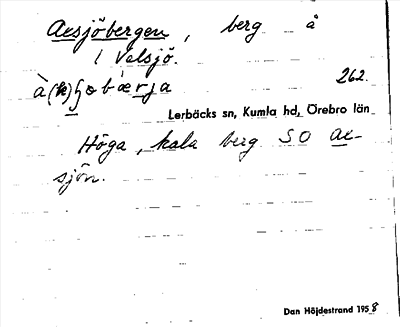 Axsjöbergen, berg å
1 Velsjö.
262.
Lerbäcks sn, Kumla hd, Örebro län
Höga, kala berg SO ax-
sjön.
Dan Höjdestrand 1958